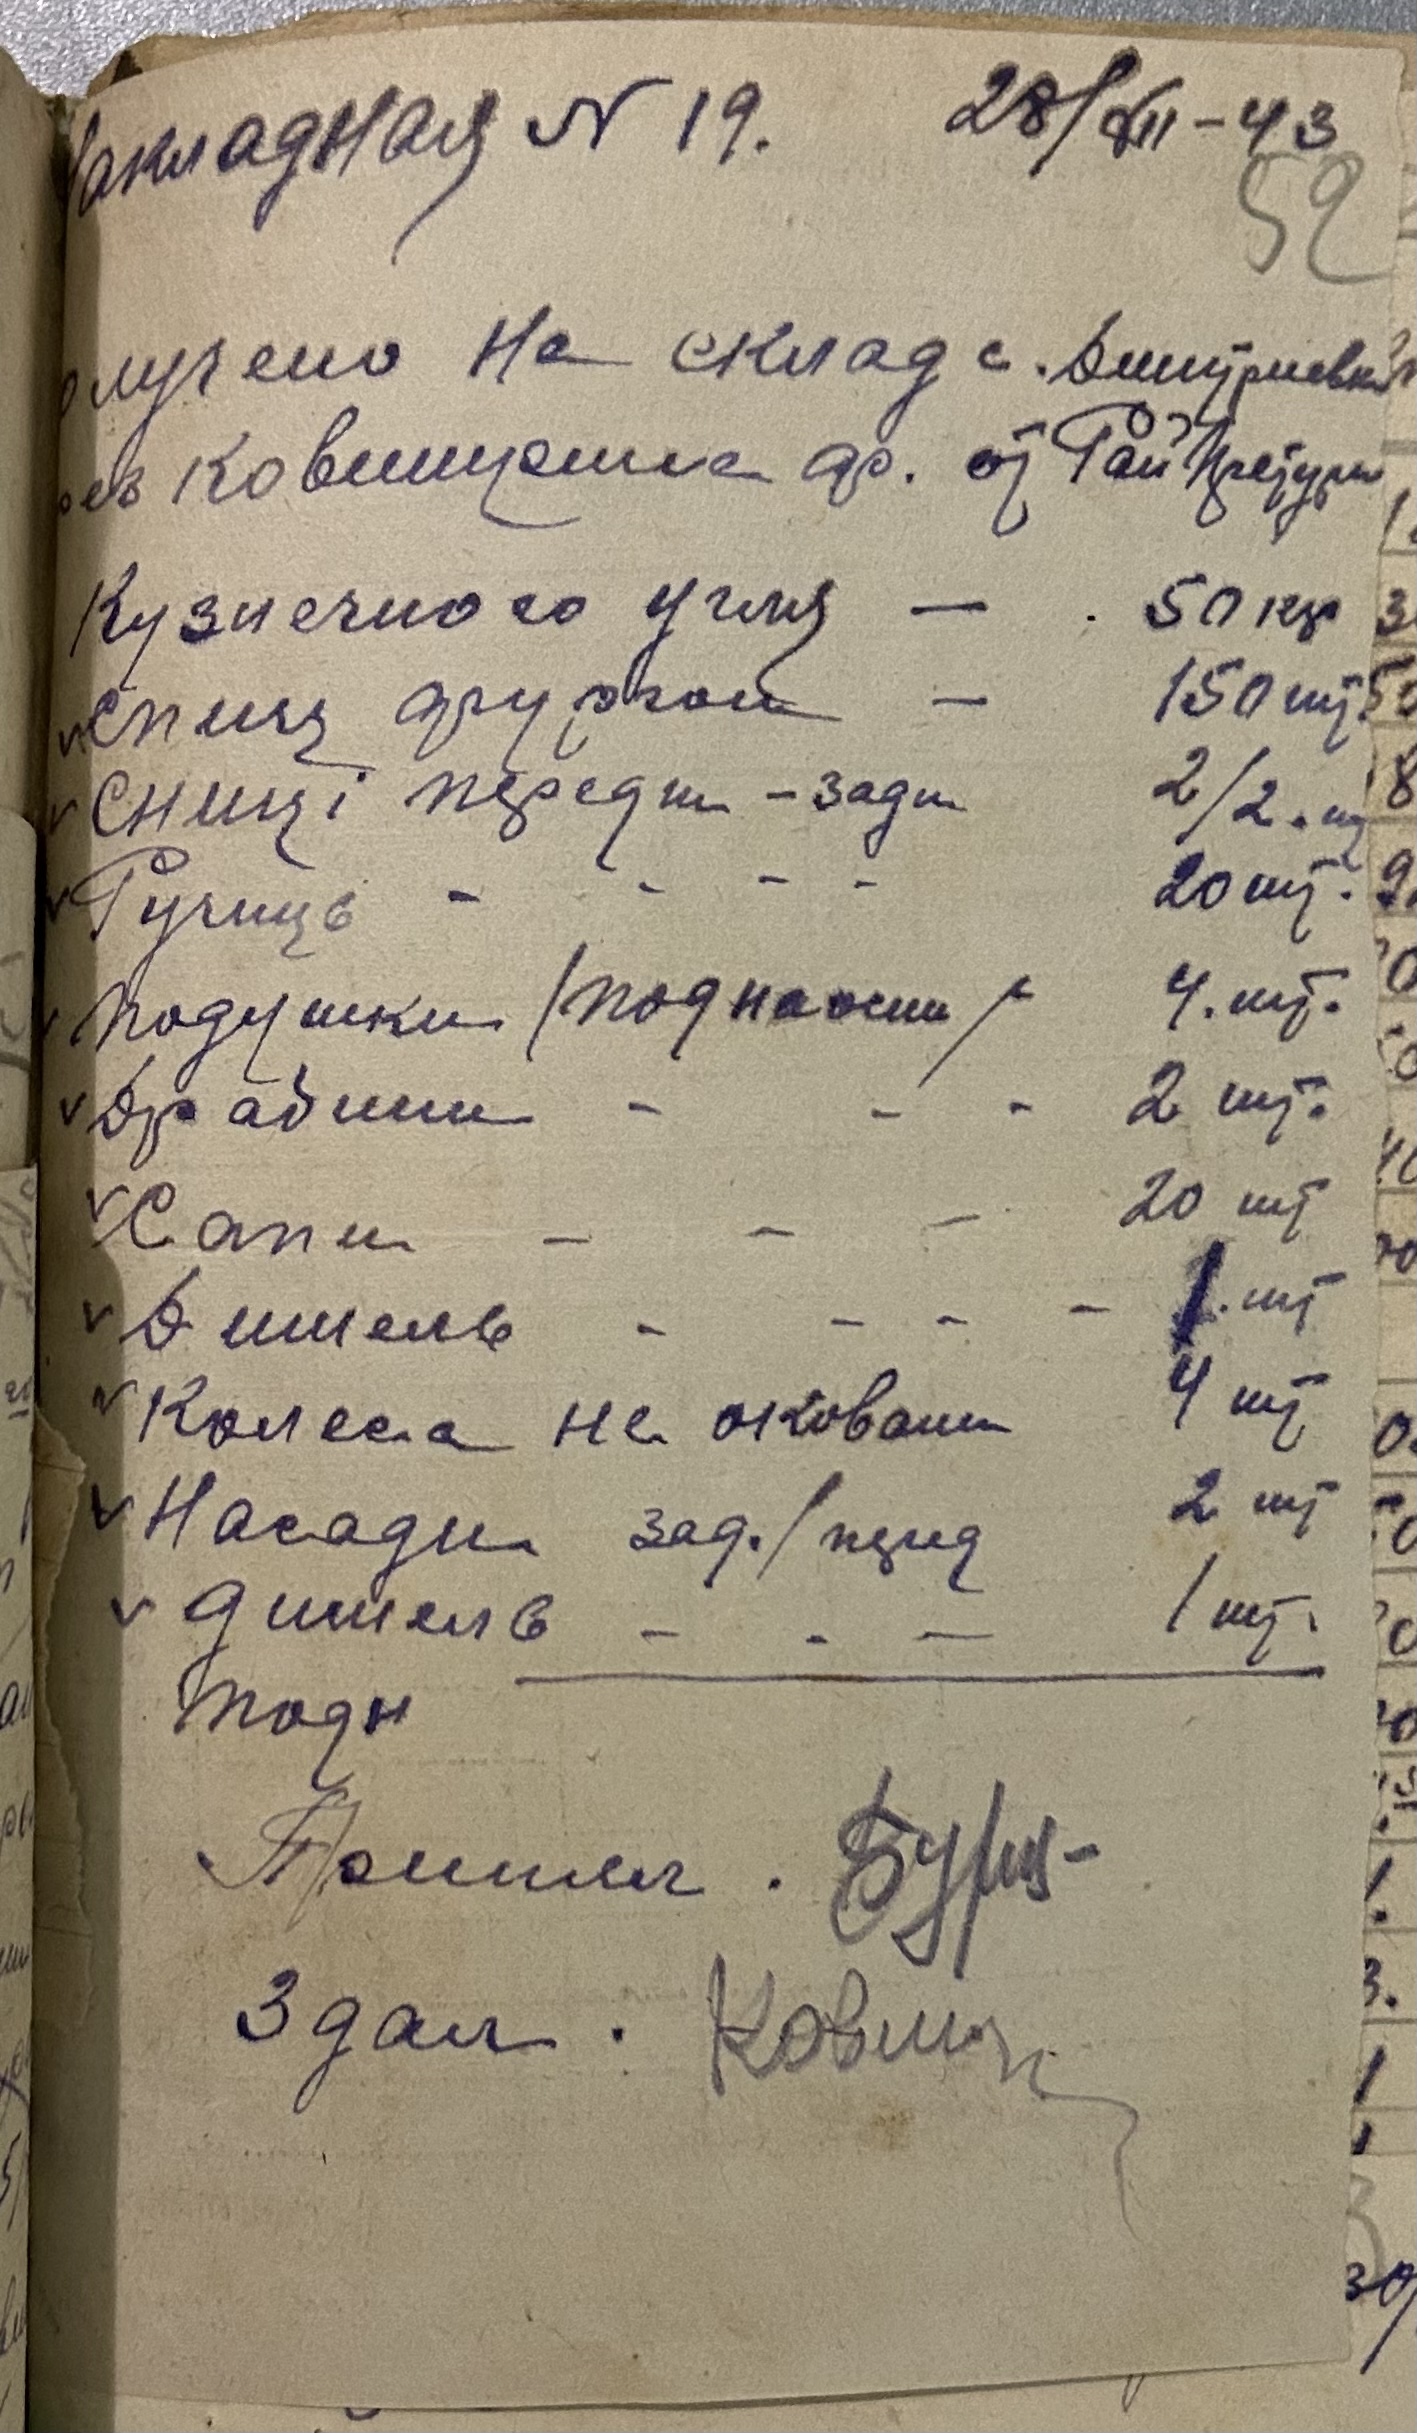 Накладная N 19. 28/XII-43
52
олучено на склад с. Дмитриевк
рез Ковшуренка др. от Рай Претуры
Кузнечного угля — 50 кгр
Спиц другом — 150 шт.
Сниці передн - задн 2/2. шт
Ручиць - - - - 20 шт.
Подушки /под на осии/ 4. шт.
Драбини - - - 2 шт.
Сапи - - - 20 шт
Дишель - - - - 1. шт
Колеса не оковани 4 шт
Насади зад./перед 2 шт
дишель - - - 1 шт.
Подн
Принял.
Здал.